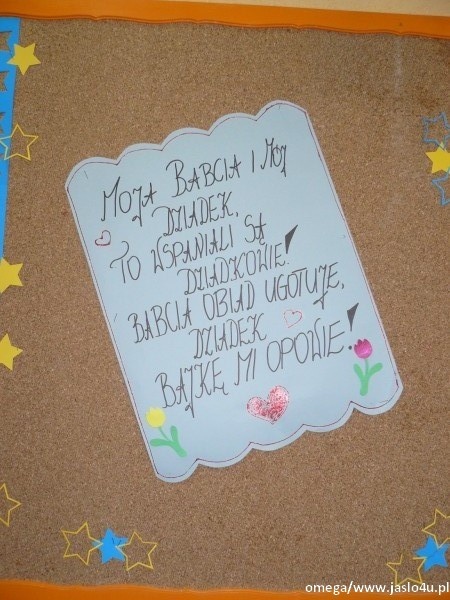 MOJA BABCIA I MÓJ
DZIADEK,
TO WSPANIALI SĄ
DZIADKOWIE!
BABCIA OBIAD UGOTUJE,
DZIADEK
BAJKĘ MI OPOWIE!
omega/www.jaslo4u.pl